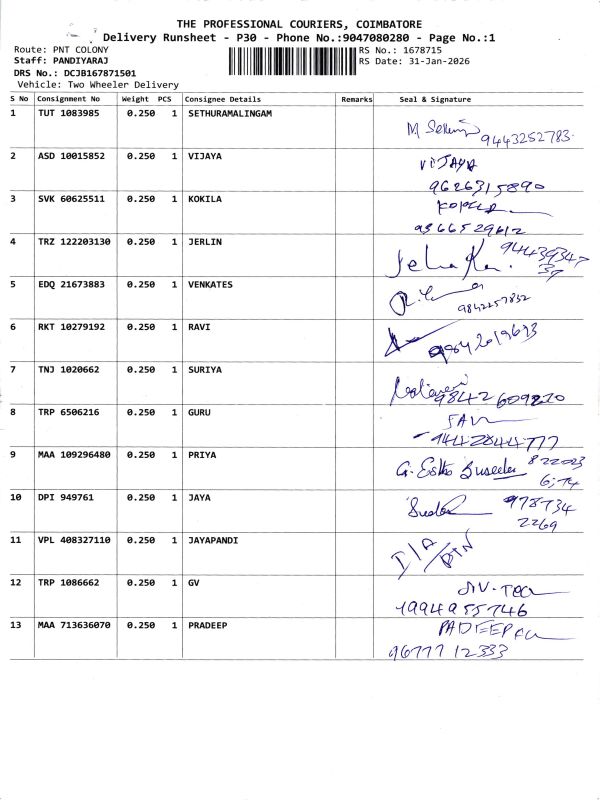 THE PROFESSIONAL COURIERS, COIMBATORE
Delivery Runsheet - P30 - Phone No.:9047080280 - Page No.:1
Route: PNT COLONY RS No.: 1678715
Staff: PANDIYARAJ RS Date: 31-Jan-2026
DRS No.: DCJB167871501
Vehicle: Two Wheeler Delivery
S No Consignment No Weight PCS Consignee Details Remarks Seal & Signature
1 TUT 1083985 0.250 1 SETHURAMALINGAM
9443252783
2 ASD 10015852 0.250 1 VIJAYA VIJAYA
9626315890
3 SVK 60625511 0.250 1 KOKILA
9366529612
4 TRZ 122203130 0.250 1 JERLIN
5 EDQ 21673883 0.250 1 VENKATES
9842257832
6 RKT 10279192 0.250 1 RAVI
7 TNJ 1020662 0.250 1 SURIYA
8 TRP 6506216 0.250 1 GURU
9442844777
9 MAA 109296480 0.250 1 PRIYA
10 DPI 949761 0.250 1 JAYA
978734
2269
11 VPL 408327110 0.250 1 JAYAPANDI
12 TRP 1086662 0.250 1 GV
9994955746
13 MAA 713636070 0.250 1 PRADEEP
9677712333